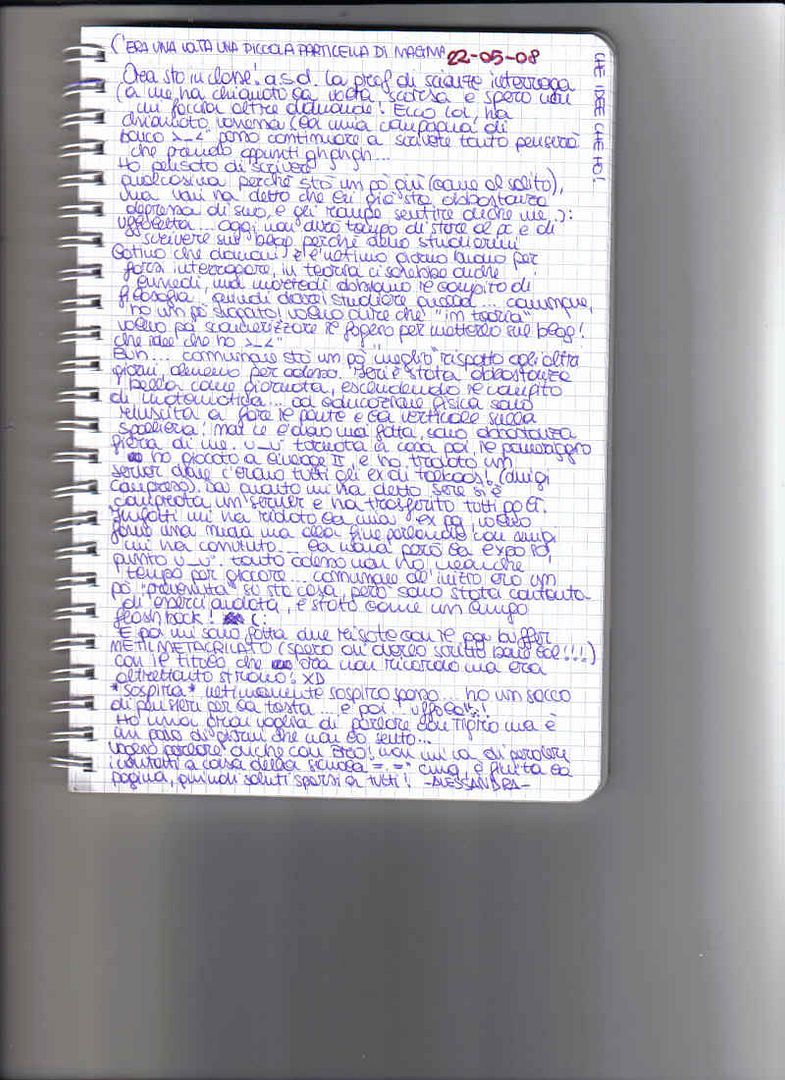 C'ERA UNA VOLTA UNA PICCOLA PARTICELLA DI MAGMA 22-05-08
CHE IDEE CHE HO!
Ora sto in classe! asd. La prof di scienze interroga
(a me ha chiamato la volta scorsa e spero non
mi faccia altre domande! Ecco lei, ha
chiamato vanessa (la mia compagna di
banco >_<" posso continuare a scrivere tanto penserà
che prendo appunti ghghgh...
Ho pensato di scrivere
qualcosina perché sto un pò giù (come al solito),
ma vani ha detto che lei già sta abbastanza
depressa di suo, e gli rompe sentire anche me ):
uffoletta... oggi non avrò tempo di stare al pc e di
scrivere sul blog perché devo studiarmi
Latino che domani è l'ultimo giorno buono per
farsi interrogare, in teoria ci sarebbe anche
lunedì, ma martedì abbiamo il compito di
filosofia, quindi dovrei studiare quella... comunque,
ho un pò slogato! volevo dire che "in teoria"
volevo poi scannerizzare il foglio per metterlo sul blog!
che idee che ho >_<"
Buh... comunque sto un pò "meglio" rispetto agli altri
giorni, almeno per adesso. Ieri è stata abbastanza
bella come giornata, escludendo il compito
di matematica... ad educazione fisica sono
riuscita a fare il ponte e la verticale sulla
spalliera! Mai ce l'avevo mai fatta, sono abbastanza
fiera di me. u_u" tornata a casa poi, il pomeriggio
ho giocato a lineage II, e ho trovato un
server dove c'erano tutti gli ex di (amici
compreso). Da quanto mi ha detto sere si è
comprata un server e ha trasferito tutti po lì.
Infatti mi ha ridato la mia ex pg, volevo
farne una nuova ma alla fine parlando con amici
mi ha convinto... la nana però la expo io,
punto u_u". tanto adesso non ho neanche
tempo per giocare... comunque all'inizio ero un
pò "prevenuta" su sta cosa, però sono stata contenta
di esserci andata, è stato come un lungo
flash back! (:
E poi mi sono fatta due risate con il pg buffer
METILMETACRILATO (spero di averlo scritto bene lol!!!)
con il titolo che ora non ricordo ma era
altrettanto strano! XD
*sospira* ultimamente sospiro spesso... ho un sacco
di pensieri per la testa... e poi... uffolat..!
Ho una gran voglia di parlare con Tipico ma è
un paio di giorni che non lo sento...
voglio parlare anche con Arco! non mi va di perdere
i contatti a causa della scuola =.=" cmq, è finita la
pagina, quindi saluti sparsi a tutti! -ALESSANDRA-